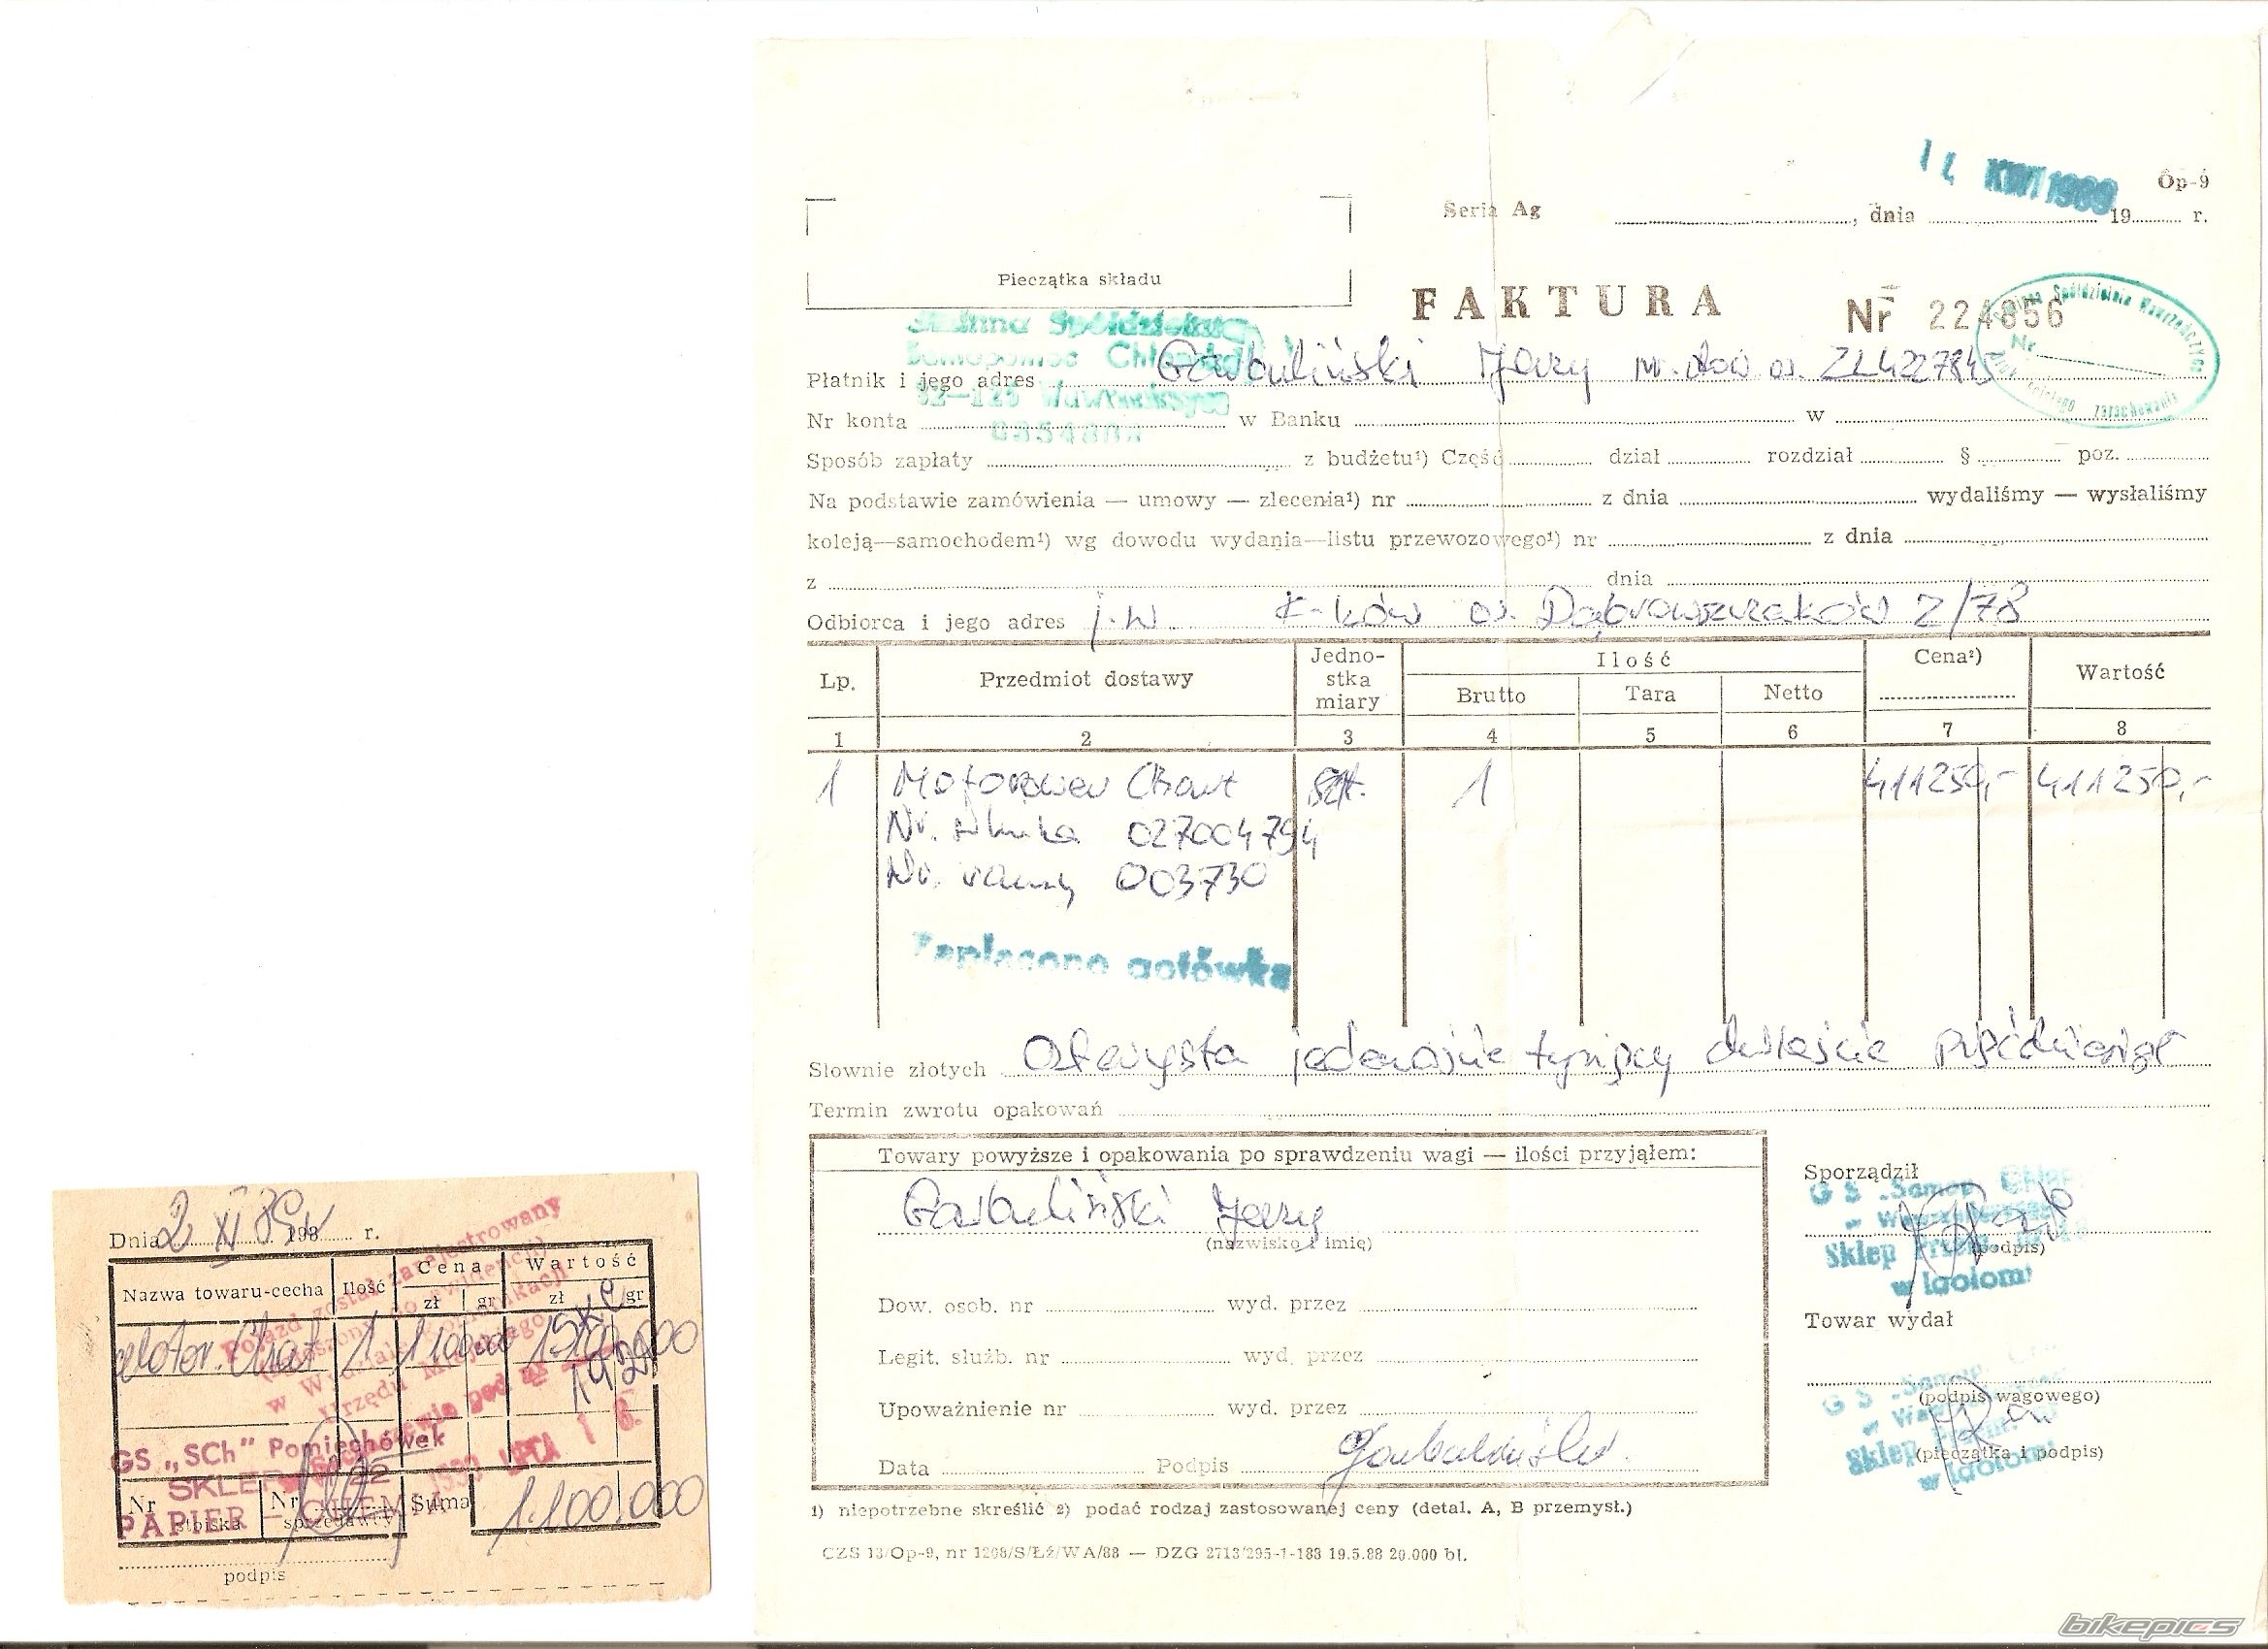 14 KWI 1989
Op-9
Seria Ag ............, dnia ............ 19...... r.
Pieczątka składu
FAKTURA Nr 224856
Gminna Spółdzielnia
Samopomoc Chłopska
Płatnik i jego adres Jerzy ZL4227845
32-125 Wawrzeńczyce
Nr konta ............ w Banku ............ w ............
Sposób zapłaty ............ z budżetu¹) Część ............ dział ............ rozdział ............ § ............ poz. ............
Na podstawie zamówienia — umowy — zlecenia¹) nr ............ z dnia ............ wydaliśmy — wysłaliśmy
koleją—samochodem¹) wg dowodu wydania—listu przewozowego¹) nr ............ z dnia ............
z ............ dnia ............
Odbiorca i jego adres j.w K-ków os. Dąbrowszczaków 2/78
Lp. Przedmiot dostawy Jedno-stka miary Ilość Cena²) Wartość
Brutto Tara Netto
1 2 3 4 5 6 7 8
1 Motorower Chart szt. 1 411250,- 411250,-
Nr. silnika 027004794
Nr. ramy 003730
Zapłacono gotówką
Słownie złotych Czterysta jedenaście tysięcy dwieście pięćdziesiąt
Termin zwrotu opakowań ............
Towary powyższe i opakowania po sprawdzeniu wagi — ilości przyjąłem:
Jerzy
(nazwisko i imię)
Dow. osob. nr ............ wyd. przez ............
Legit. służb. nr ............ wyd. przez ............
Upoważnienie nr ............ wyd. przez ............
Data ............ Podpis ............
Sporządził
GS „Samop. Chłop
Sklep
(podpis)
w Igołomi
Towar wydał
GS „Samop.
(podpis wagowego)
Sklep
(pieczątka i podpis)
w Igołomi
1) niepotrzebne skreślić 2) podać rodzaj zastosowanej ceny (detal. A, B przemysł.)
CZS 13/Op-9, nr 1208/S/Łź/WA/88 — DZG 2713/295-1-188 19.5.88 20.000 bl.
Dnia 2 XI 89 198 r.
Nazwa towaru-cecha Ilość Cena Wartość
zł gr zł gr
motor. Chart 1
Pojazd został zarejestrowany
GS „SCh" Pomiechówek
SKLEP 22
PAPIER - CHEMIA
Nr stoiska Nr sprzedawcy Suma 1.100.000
podpis
bikepics